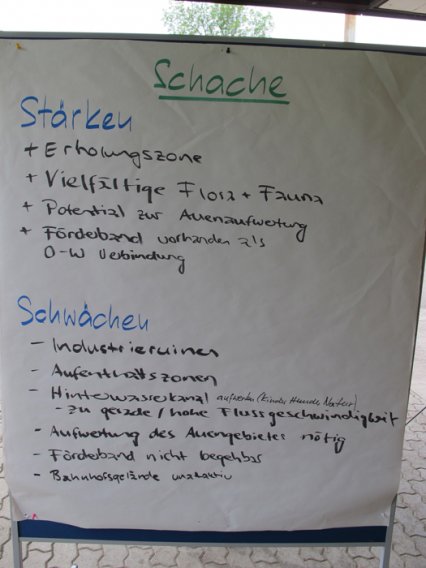 Schache
Stärken
+ Erholungszone
+ Vielfältige Flora + Fauna
+ Potential zur Auenaufwertung
+ Förderband vorhanden als
O-W Verbindung
Schwächen
- Industrieruinen
- Aufenthaltszonen
- Hinterwasserkanal aufwerten (Kinder Hunde Natur)
- zu gerade / hohe Flussgeschwindigkeit
- Aufwertung des Auengebietes nötig
- Förderband nicht begehbar
- Bahnhofsgelände unattraktiv